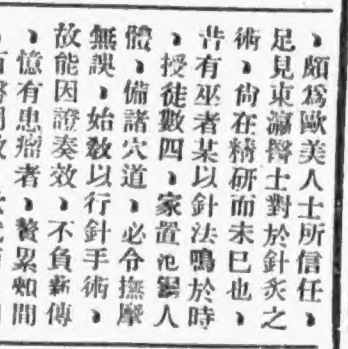 、頗爲歐美人士所信任、
足見東瀛醫士對於針灸之
術、尙在精研而未已也、
昔有巫者某以針法鳴於時
、授徒數四、家置人
體、備諸穴道、必令撫摩
無誤、始敎以行針手術、
故能因證奏效、不負薪傳
、憶有患瘤者、贅累頰間